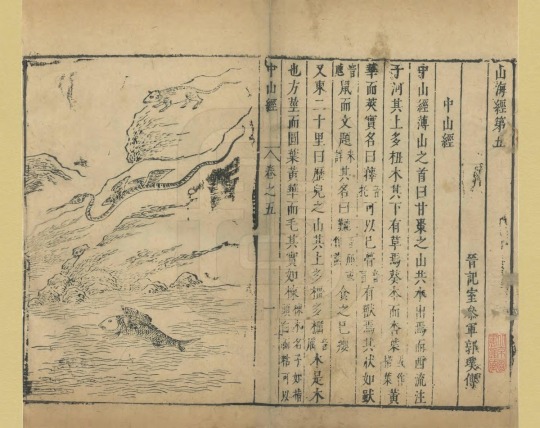 山海經第五
晉記室參軍郭璞傳
中山經
中山經薄山之首曰甘棗之山共水出焉而西流注
于河其上多杻木其下有草焉葵本而杏葉黃
華而莢實名曰籜可以已瞢有獸焉其狀如
鼠而文題其名曰食之已癭
又東二十里曰歷兒之山其上多橿多木是木
也方莖而圓葉黃華而毛其實如楝
中山經
卷之五
一